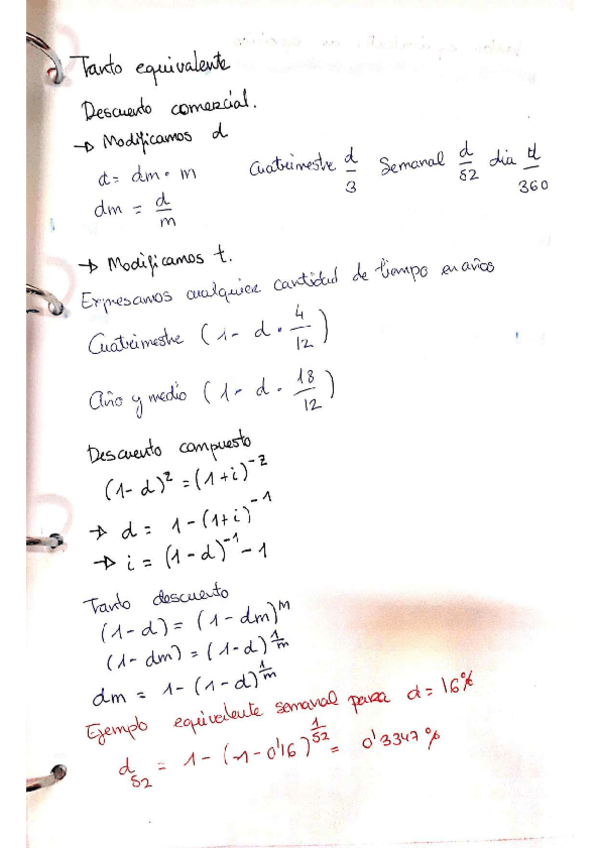 Tanto equivalente
Descuento comercial.
→ Modificamos d
d = dm · m    Cuatrimestre d/3    Semanal d/52    dia d/360
dm = d/m
→ Modificamos t.
Expresamos cualquier cantidad de tiempo en años
Cuatrimestre (1 - d · 4/12)
Año y medio (1 - d · 18/12)
Descuento compuesto
(1 - d)² = (1 + i)⁻²
→ d = 1 - (1 + i)⁻¹
→ i = (1 - d)⁻¹ - 1
Tanto descuento
(1 - d) = (1 - dm)^m
(1 - dm) = (1 - d)^1/m
dm = 1 - (1 - d)^1/m
Ejemplo equivalente semanal para d = 16%
d52 = 1 - (1 - 0'16)^1/52 = 0'3347%